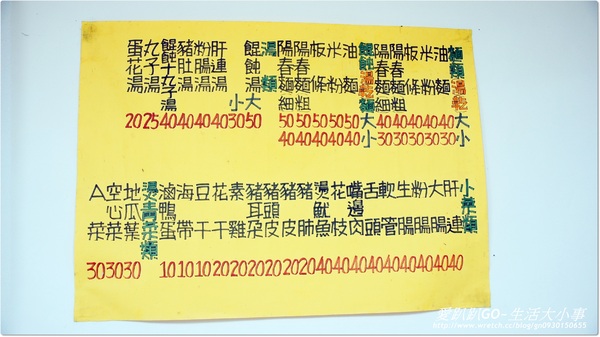 麵類湯乾
大 小
油麵 40 30
米粉 40 30
板條 40 30
陽春麵粗 40 30
陽春麵細 40 30
餛飩湯乾麵
大 小
油麵 50 40
米粉 50 40
板條 50 40
陽春麵粗 50 40
陽春麵細 50 40
湯類
餛飩湯 大 50
小 30
肝連湯 40
粉腸湯 40
豬肚湯 40
餛飩十丸子湯 40
丸子湯 25
蛋花湯 20
小菜類
肝連 40
大腸 40
粉腸 40
生腸 40
軟管 40
舌頭 40
嘴邊肉 40
花枝 40
燙魷魚 40
豬肺 20
豬皮 20
豬頭皮 20
豬耳朵 20
素雞 20
花干 20
豆干 10
海帶 10
滷鴨蛋 10
燙青菜類
地瓜葉 30
空心菜 30
A菜 30
愛趴趴GO-生活大小事
http://www.wretch.cc/blog/go0920150655